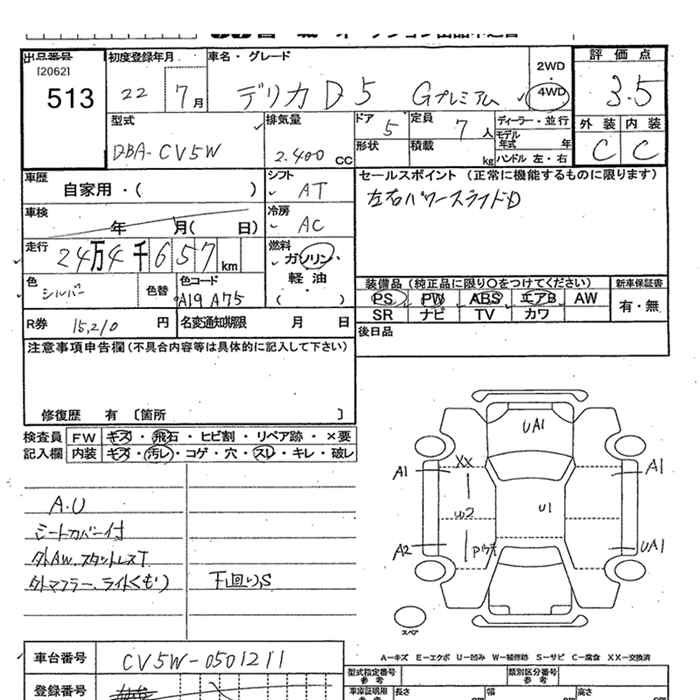 出品番号
[2062]
513
初度登録年月
22 7月
車名・グレード
デリカ D5 Gプレミアム
2WD
・
4WD
評価点
3.5
外装 内装
C C
型式
DBA-CV5W
排気量
2.400 CC
ドア
5
形状
定員
7 人
積載
kg
ディーラー・並行
モデル
年式 年
ハンドル 左・右
車歴
自家用・( )
シフト
AT
車検
年 月( 日)
冷房
AC
走行
24万4千657km
燃料
ガソリン・
軽油
( )
色
シルバー
色替
色コード
A19 A75
R券 15,210 円
名変通知期限 月 日
セールスポイント(正常に機能するものに限ります)
左右パワースライドD
装備品(純正品に限り○をつけてください)
PS PW ABS エアB AW
SR ナビ TV カワ
新車保証書
有・無
後日品
注意事項申告欄(不具合内容等は具体的に記入して下さい)
修復歴 有 〔箇所 〕
検査員
記入欄
FW キズ・飛石・ヒビ割・リペア跡・×要
内装 キズ・汚レ・コゲ・穴・スレ・キレ・破レ
A.U
シートカバー付
外AW.スタットレスT
外マフラー.ライトくもり
下回りS
UA1
A1
XX
A1
W2
U1
A2
UA1
スペア
A-キズ E-エクボ U-凹み W-補修跡 S-サビ C-腐食 XX-交換済
車台番号
CV5W-0501211
登録番号
型式指定番号
類別区分番号
車庫証明用
長さ
幅
高さ